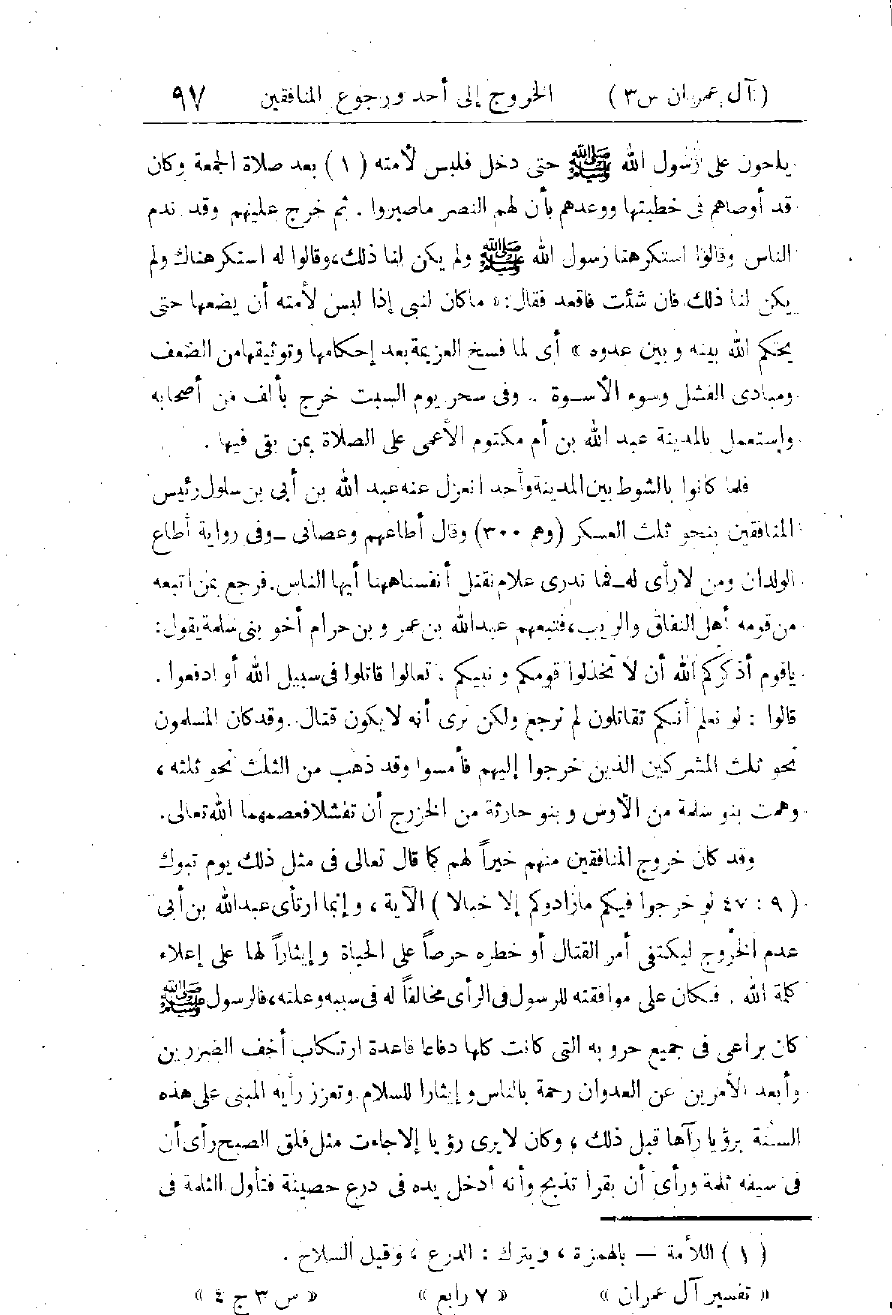 (آل عمران س ٣) الخروج إلى أحد ورجوع المنافقين ٩٧
يلحون على رسول الله ﷺ حتى دخل فلبس لأمته (١) بعد صلاة الجمعة وكان
قد أوصاهم فى خطبتها ووعدهم بأن لهم النصر ماصبروا . ثم خرج عليهم وقد ندم
الناس وقالوا استكرهنا رسول الله ﷺ ولم يكن لنا ذلك، وقالوا له استكرهناك ولم
يكن لنا ذلك فان شئت فاقعد فقال: « ماكان لنبى إذا لبس لأمته أن يضعها حتى
يحكم الله بينه وبين عدوه » أى لما فسخ العزيمة بعد إحكامها وتوثيقها من الضعف
ومبادى الفشل وسوء الأسوة .. وفى سحر يوم السبت خرج بألف من أصحابه
وإستعمل بالمدينة عبد الله بن أم مكتوم الأعمى على الصلاة بمن بقى فيها .
فلما كانوا بالشوط بين المدينة وأحد انعزل عنه عبد الله بن أبى بن سلول رئيس
المنافقين بنحو ثلث العسكر (وهم ٣٠٠) وقال أطاعهم وعصانى ــ وفى رواية أطاع
الولدان ومن لارأى له ــ فما ندرى علام نقتل أنفسنا ههنا أيها الناس. فرجع بمن اتبعه
من قومه أهل النفاق والريب، فتبعهم عبدالله بن عمر و بن حرام أخو بنى سلمة يقول:
ياقوم أذكركم الله أن لا تخذلوا قومكم ونبيكم ، تعالوا قاتلوا فى سبيل الله أو ادفعوا .
قالوا : لو نعلم أنكم تقاتلون لم نرجع ولكن نرى أنه لايكون قتال. وقد كان المسلمون
نحو ثلث المشركين الذين خرجوا إليهم فأمسوا وقد ذهب من الثلث نحو ثلثه ،
وهمت بنو سلمة من الأوس وبنو حارثة من الخزرج أن تفشلا فعصمهما الله تعالى.
وقد كان خروج المنافقين منهم خيراً لهم كما قال تعالى فى مثل ذلك يوم تبوك
( ٩ : ٤٧ لو خرجوا فيكم مازادوكم إلا خبالا ) الآية ، وإنما ارتأى عبدالله بن أبى
عدم الخروج ليكتفى أمر القتال أو خطره حرصاً على الحياة وإيثاراً لها على إعلاء
كلمة الله . فكان على موافقته للرسول فى الرأى مخالفاً له فى سببه وعلته، فالرسول ﷺ
كان يراعى فى جميع حروبه التى كانت كلها دفاعا قاعدة ارتكاب أخف الضررين
وأبعد الأمرين عن العدوان رحمة بالناس وإيثارا للسلام وتعزز رأيه المبنى على هذه
السنة برؤيا رآها قبل ذلك ، وكان لايرى رؤيا إلا جاءت مثل فلق الصبح رأى أن
فى سيفه ثلمة ورأى أن بقرا تذبح وأنه أدخل يده فى درع حصينة فتأول الثلمة فى
(١) اللأمة — بالهمزة ، ويترك : الدرع ، وقيل السلاح .
« تفسير آل عمران » « ٧ رابع » « س ٣ ج ٤ »